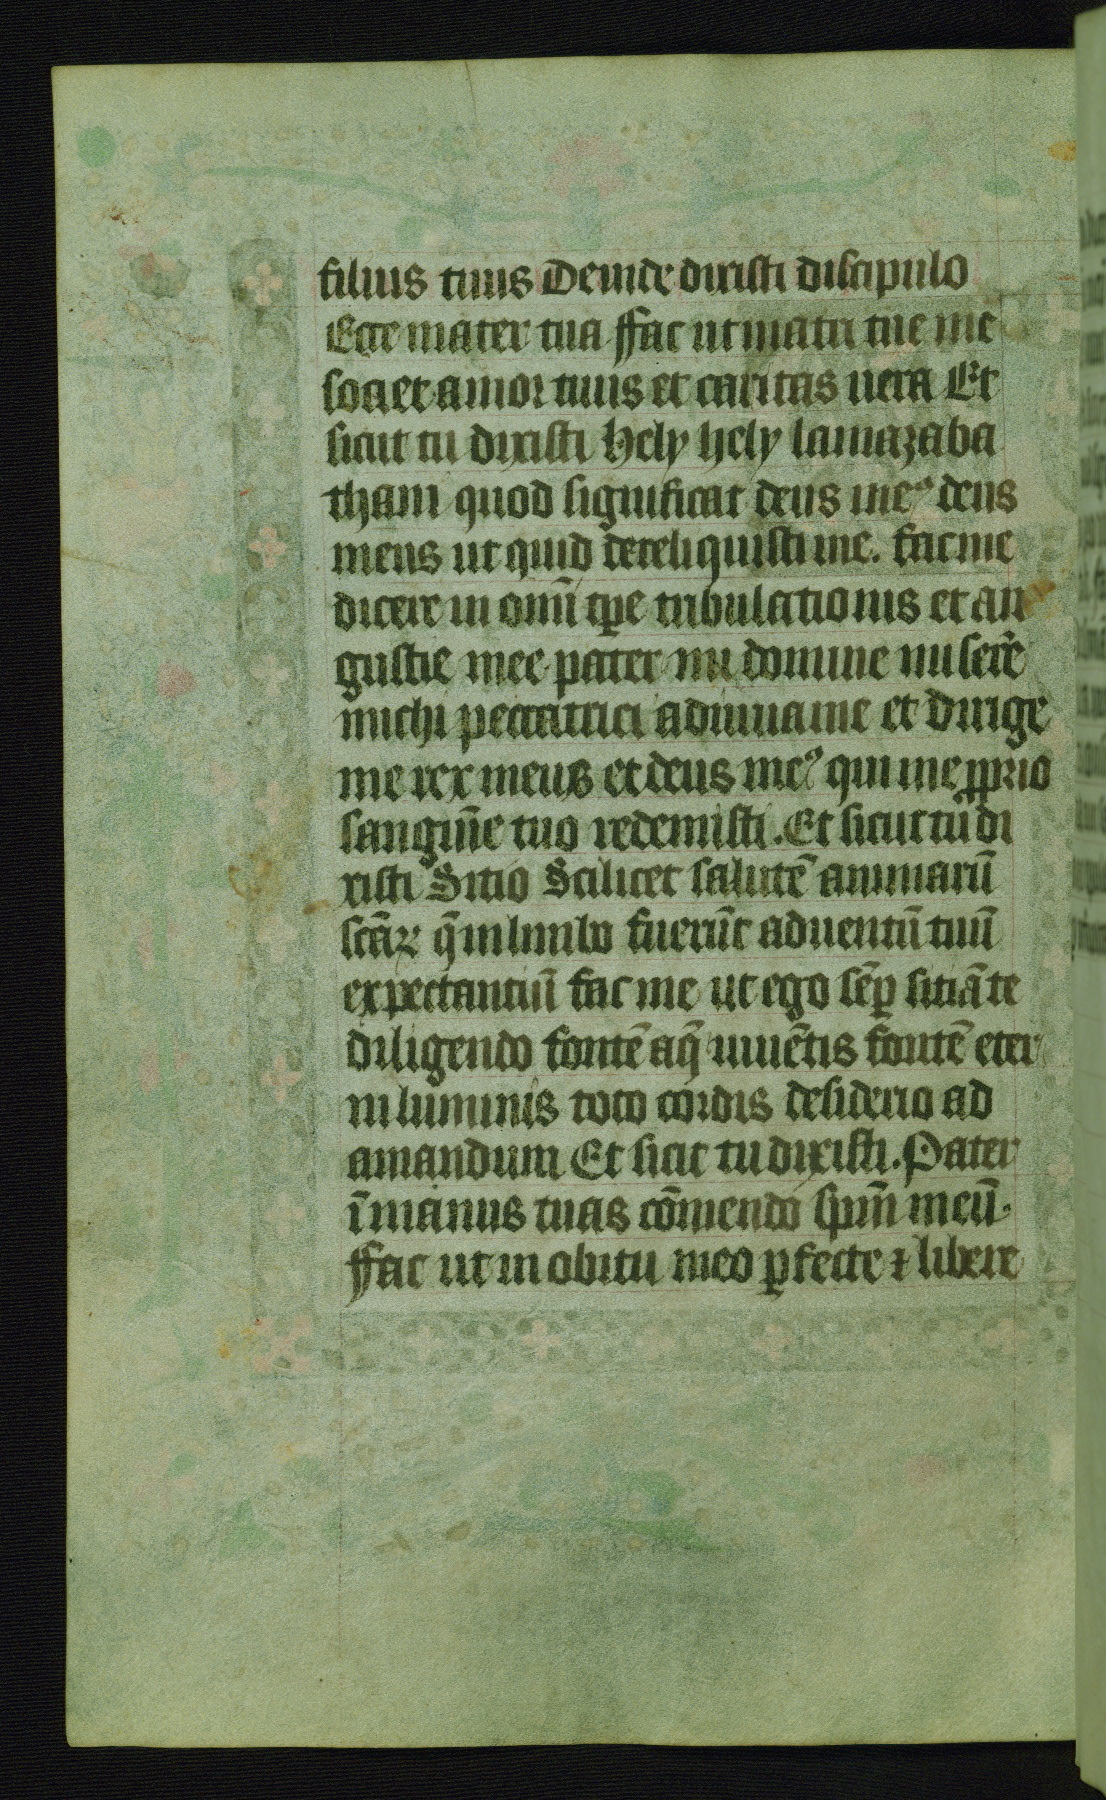 filius tuus Deinde dixisti discipulo
Ecce mater tua ffac ut matri tue me
societ amor tuus et caritas uera Et
sicut tu dixisti Hely hely lamazaba
thani quod significat deus meꝰ deus
meus ut quid dereliquisti me. fac me
dicere in omī tp̄e tribulationis et an
gustie mee pater mi domine miserē
michi peccatrici adiuua me et dirige
me rex meus et deus meꝰ qui me ꝓprio
sanguīe tuo redemisti. Et sicut tu di
xisti Sitio Scilicet salutē animarū
scāꝝ q̄ in limbo fuerūt aduentū tuū
expectantiū fac me ut ego sēꝑ sitiā te
diligendo fontē aq̄ uiuētis fontē eter
ni luminis toto cordis desiderio ad
amandum Et sicut tu dixisti. Pater
ī manus tuas cōmendo spm̄ meū.
ffac ut in obitu meo ꝑfecte ⁊ libere